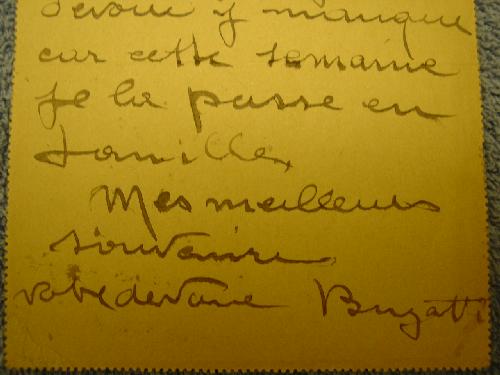 devoir y manquer
car cette semaine
je la passe en
famille.
Mes meilleurs
souvenirs
votre Bugatti